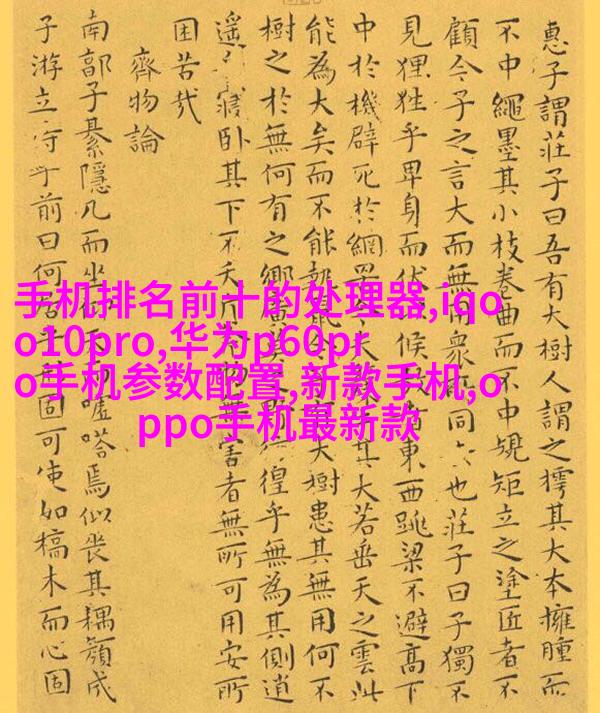 惠子謂莊子曰吾有大樹人謂之樗其大本擁腫而
不中繩墨其小枝卷曲而不中規矩立之塗匠者不
顧今子之言大而無用衆同也莊子曰子獨不
見狸狌乎卑身而伏候東西跳梁不避高下
中於機辟死於網罟今夫其大若垂天之雲此
能為大矣而不能執鼠今大樹患其無用何不
樹之於無何有之鄉廣莫之徨乎無為其側逍
遙寢卧其下不夭斤物無害者無所可用安所
困苦哉
齊物論
南郭子綦隱几而坐而噓嗒焉似喪其耦顏成
子游立侍乎前曰何居乎固可使如槁木而心固
手机排名前十的处理器,iqo
o10pro,华为p60pr
o手机参数配置,新款手机,o
ppo手机最新款